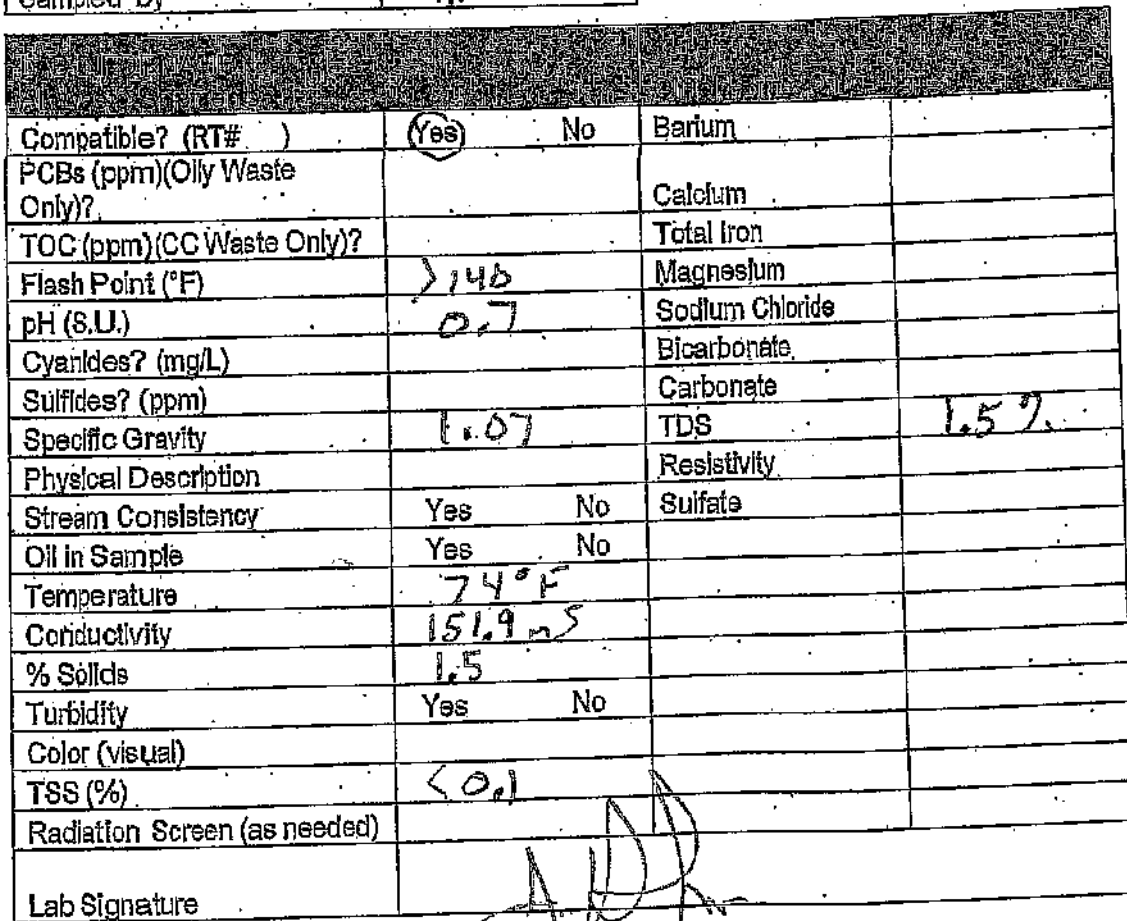 Sampled by
LAB INFORMATION
Compatible? (RT# ) Yes No Barium
PCBs (ppm)(Oily Waste
Only)? Calcium
TOC (ppm)(CC Waste Only)? Total Iron
Flash Point (°F) >140 Magnesium
pH (S.U.) 0.7 Sodium Chloride
Cyanides? (mg/L) Bicarbonate
Sulfides? (ppm) Carbonate
Specific Gravity 1.07 TDS 1.5%
Physical Description Resistivity
Stream Consistency Yes No Sulfate
Oil in Sample Yes No
Temperature 74°F
Conductivity 151.9 mS
% Solids 1.5
Turbidity Yes No
Color (visual)
TSS (%) <0.1
Radiation Screen (as needed)
Lab Signature